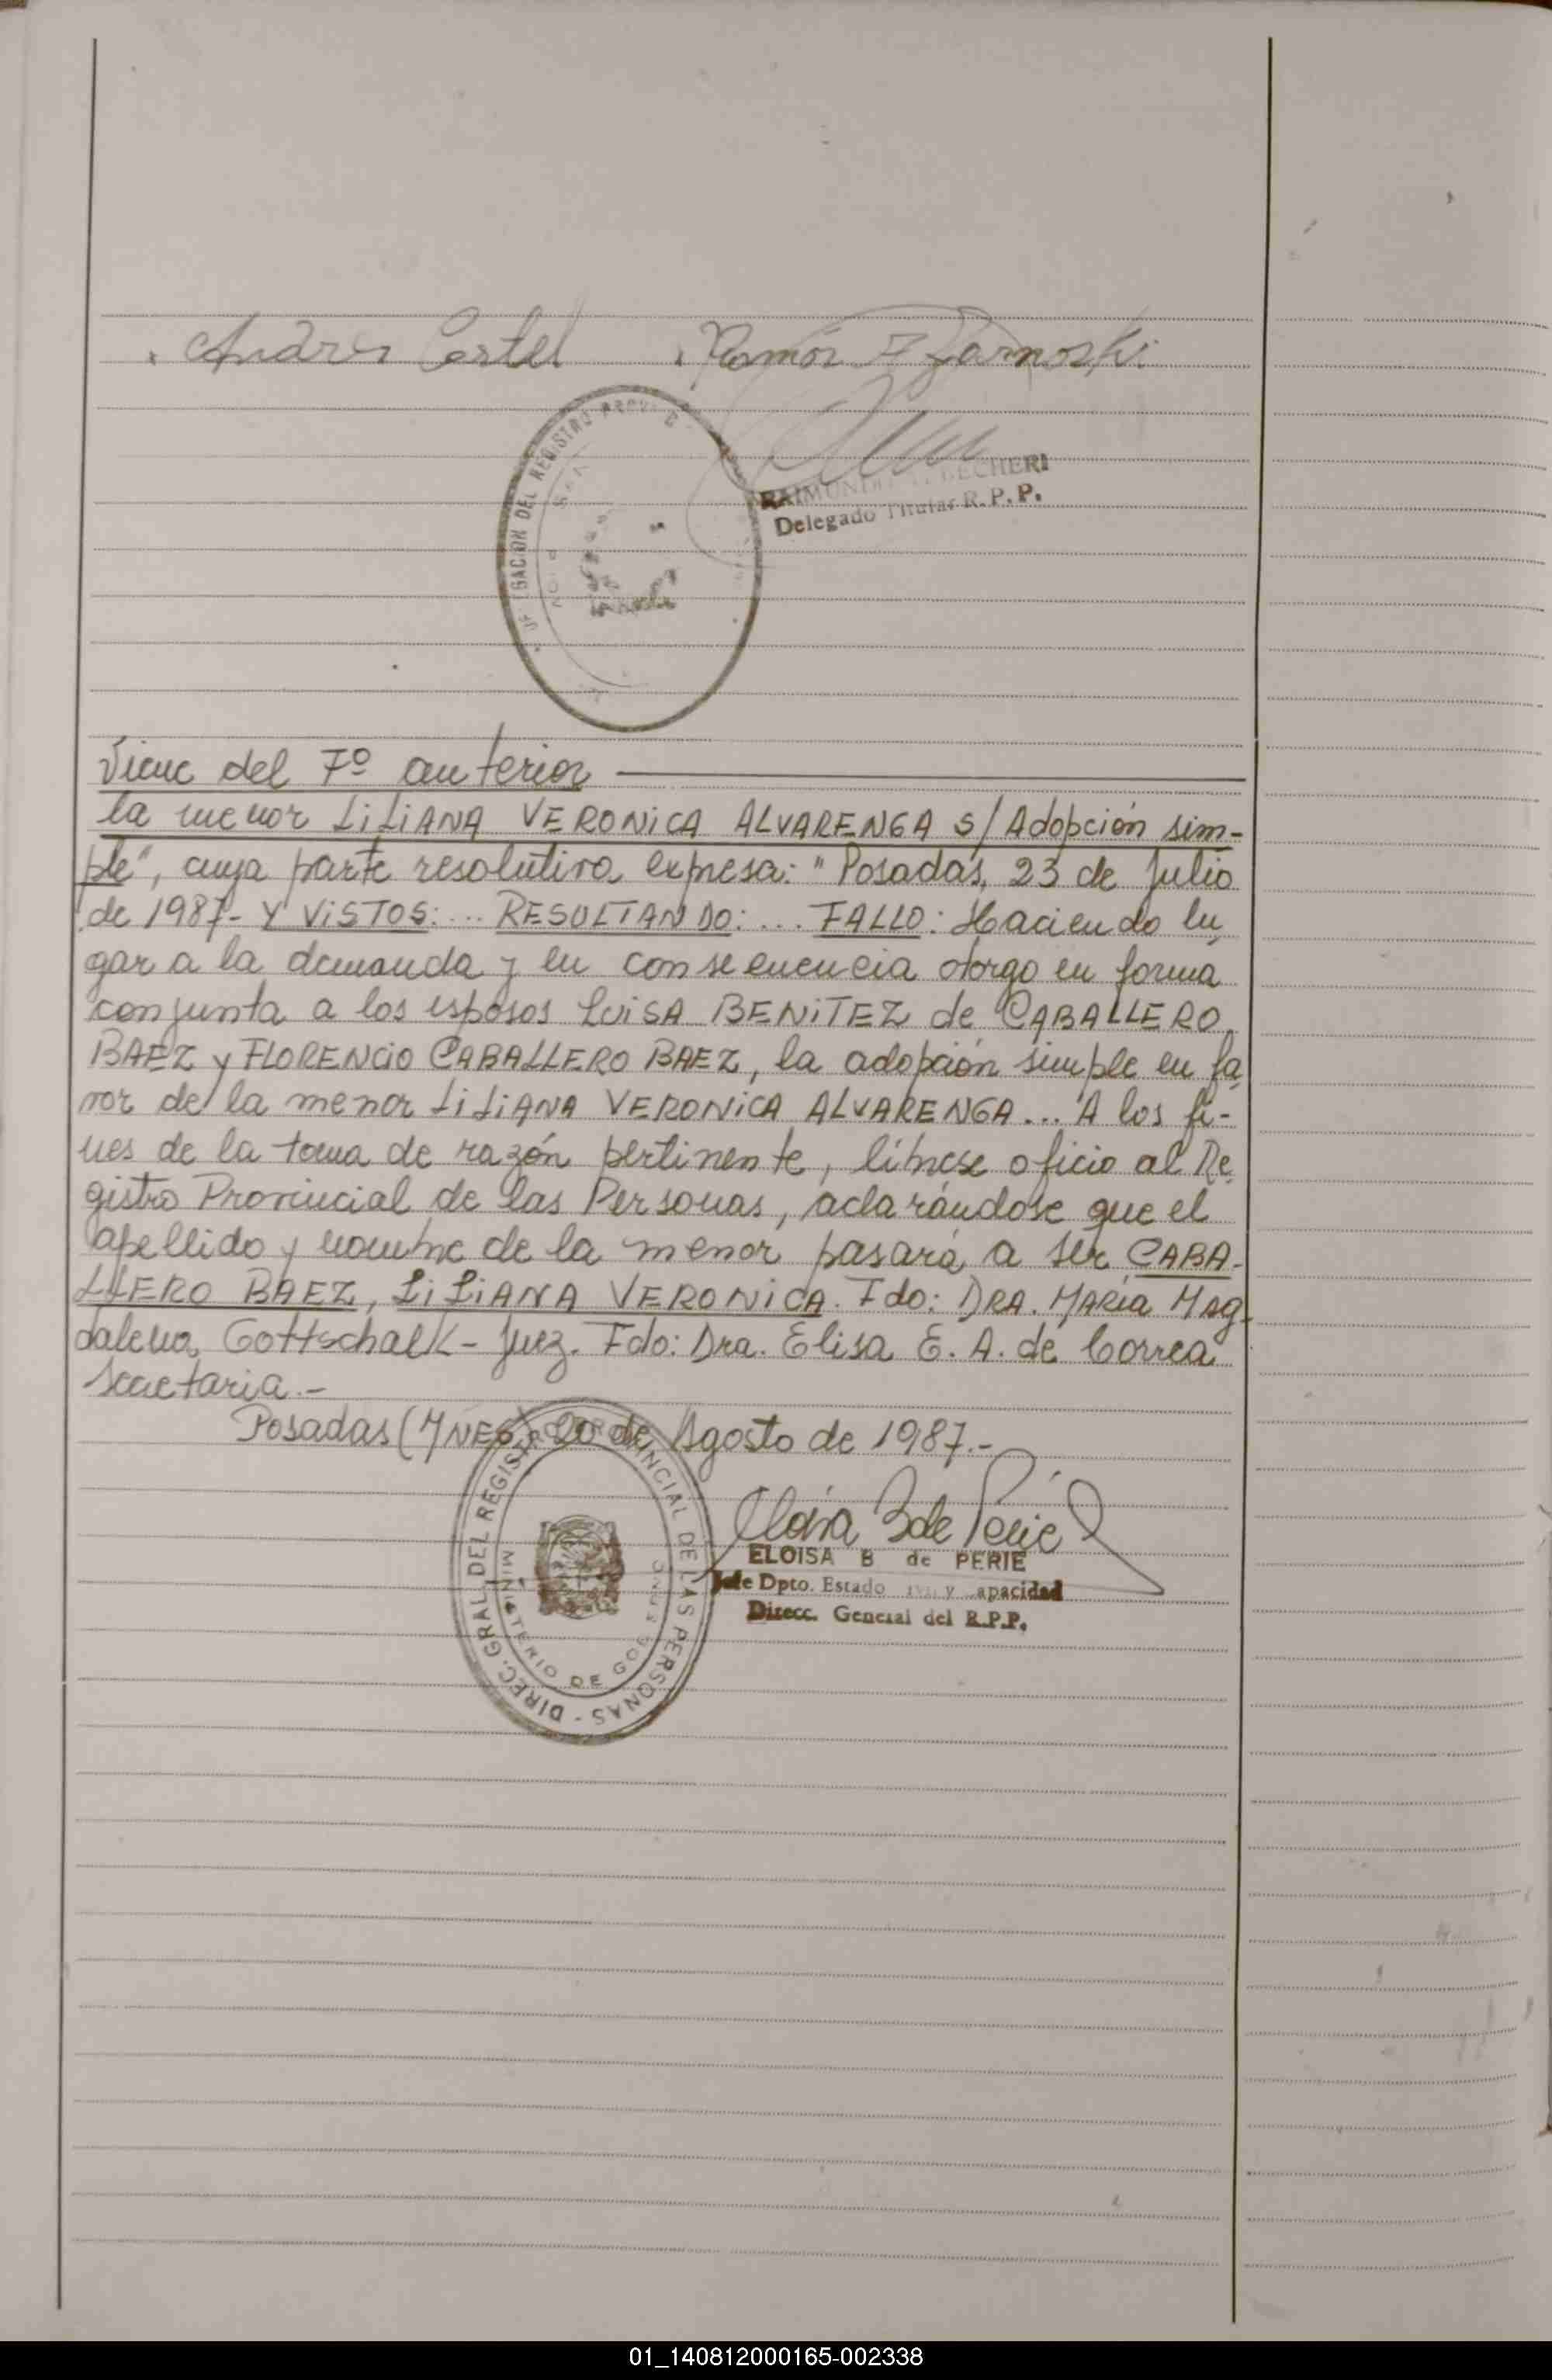 Andrés Ramón
DEL REGISTRO
RAIMUNDO
Delegado Titular R.P.P.
Viene del Fº anterior
la menor LiLiANA VERONiCA ALVARENGA s/Adopción sim-
ple", cuya parte resolutiva expresa: "Posadas, 23 de Julio
de 1987- Y ViSTOS:... RESULTANDO:... FALLO: Haciendo lu
gar a la demanda y en consecuencia otorgo en forma
conjunta a los esposos LUiSA BENiTEZ de CABALLERO
BAEZ y FLORENCiO CABALLERO BAEZ, la adopción simple en fa
vor de la menor LiLiANA VERONiCA ALVARENGA... A los fi-
nes de la toma de razón pertinente, líbrese oficio al Re
gistro Provincial de las Personas, aclarándose que el
apellido y nombre de la menor pasará a ser CABA-
LLERO BAEZ, LiLiANA VERONiCA. Fdo: DRA. MARía MAg-
dalena Gottschalk- Juez. Fdo: Dra. Elisa E. A. de Correa
Secretaria.-
Posadas (Mnes) 20 de Agosto de 1987.-
Eloisa B de Perié
ELOISA B de PERIE
Jefe Dpto. Estado Civil y Capacidad
Direcc. General del R.P.P.
DIREC. GRAL. DEL REGISTRO PROVINCIAL DE LAS PERSONAS -
MINISTERIO DE GOBIERNO
01_140812000165-002338